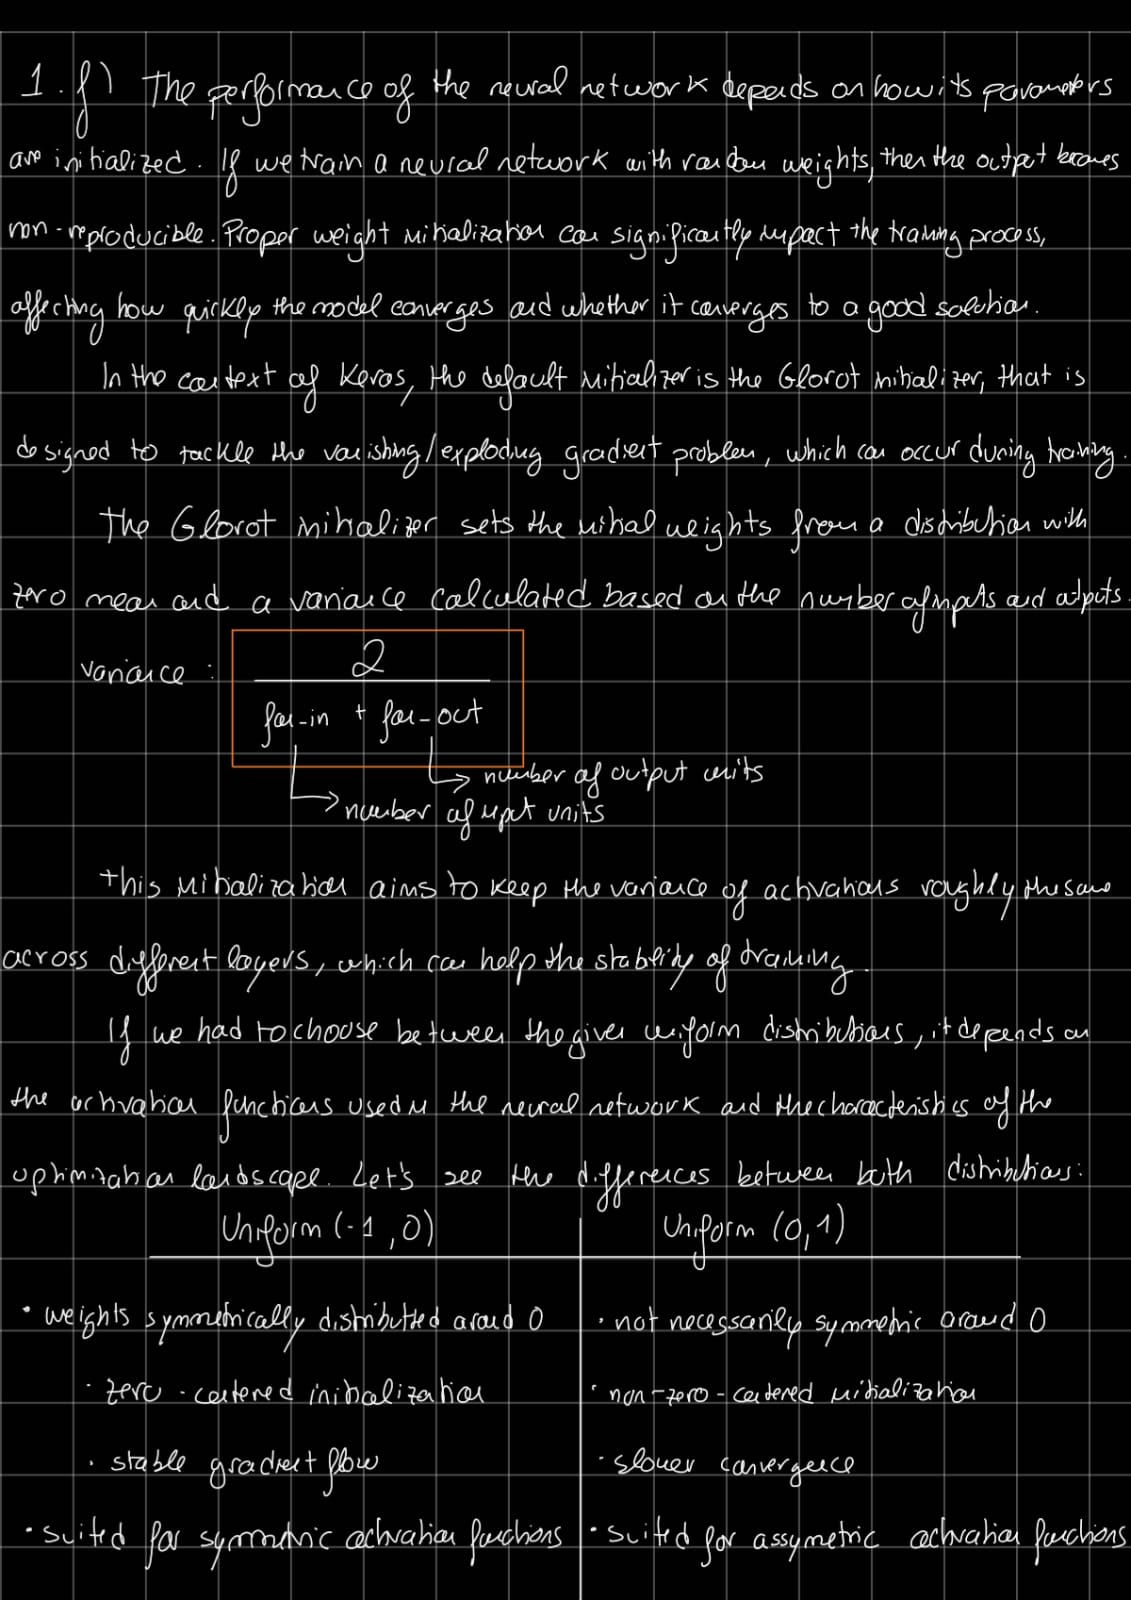 1. f) The performance of the neural network depends on how its parameters
are initialized. If we train a neural network with random weights, then the output becomes
non-reproducible. Proper weight initialization can significantly impact the training process,
affecting how quickly the model converges and whether it converges to a good solution.
In the context of Keras, the default initializer is the Glorot initializer, that is
designed to tackle the vanishing/exploding gradient problem, which can occur during training.
The Glorot initializer sets the initial weights from a distribution with
zero mean and a variance calculated based on the number of inputs and outputs.
variance : 2
fan-in + fan-out
number of output units
number of input units
This initialization aims to keep the variance of activations roughly the same
across different layers, which can help the stability of training.
If we had to choose between the given uniform distributions, it depends on
the activation functions used in the neural network and the characteristics of the
optimization landscape. Let's see the differences between both distributions:
Uniform (-1, 0) Uniform (0, 1)
• weights symmetrically distributed around 0
• zero-centered initialization
• stable gradient flow
• suited for symmetric activation functions
• not necessarily symmetric around 0
• non-zero-centered initialization
• slower convergence
• suited for assymetric activation functions